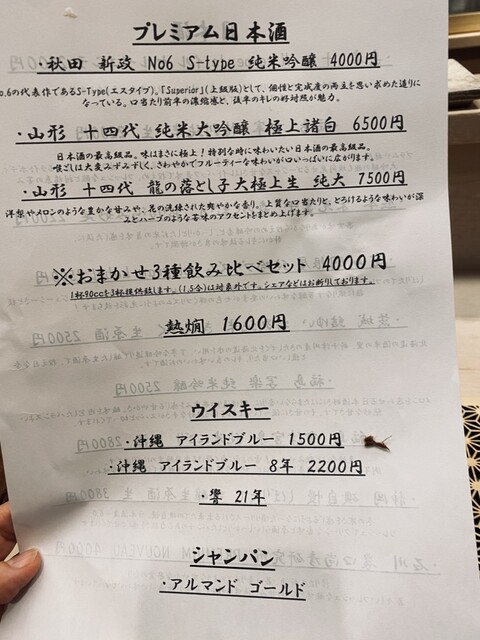 プレミアム日本酒
・秋田 新政 No6 S-type 純米吟醸 4000円
o.6の代表作であるS-Type(エスタイプ)。「Superior」(上級版)として、個性と完成度の両立を思い求めた造りに
なっている。口当たり前半の濃縮感と、後半のキレの好対照が魅力。
・山形 十四代 純米大吟醸 極上諸白 6500円
日本酒の最高級品。味はまさに極上!特別な時に味わいたい日本酒の最高級品。
喉ごしは大変みずみずしく、さわやかでフルーティーな味わいが口いっぱいに広がります。
・山形 十四代 龍の落とし子大極上生 純大 7500円
洋梨やメロンのような豊かな甘みや、花の洗練された爽やかな香り。上質な口当たりと、とろけるような味わいが深
みとハーブのような辛味のアクセントをまとめ上げます。
※おまかせ3種飲み比べセット 4000円
1杯90ccを3杯提供致します。(1.5合)は対象外です。シェアなどはお断りしております。
熱燗 1600円
ウイスキー
・沖縄 アイランドブルー 1500円
・沖縄 アイランドブルー 8年 2200円
・響 21年
シャンパン
・アルマンド ゴールド